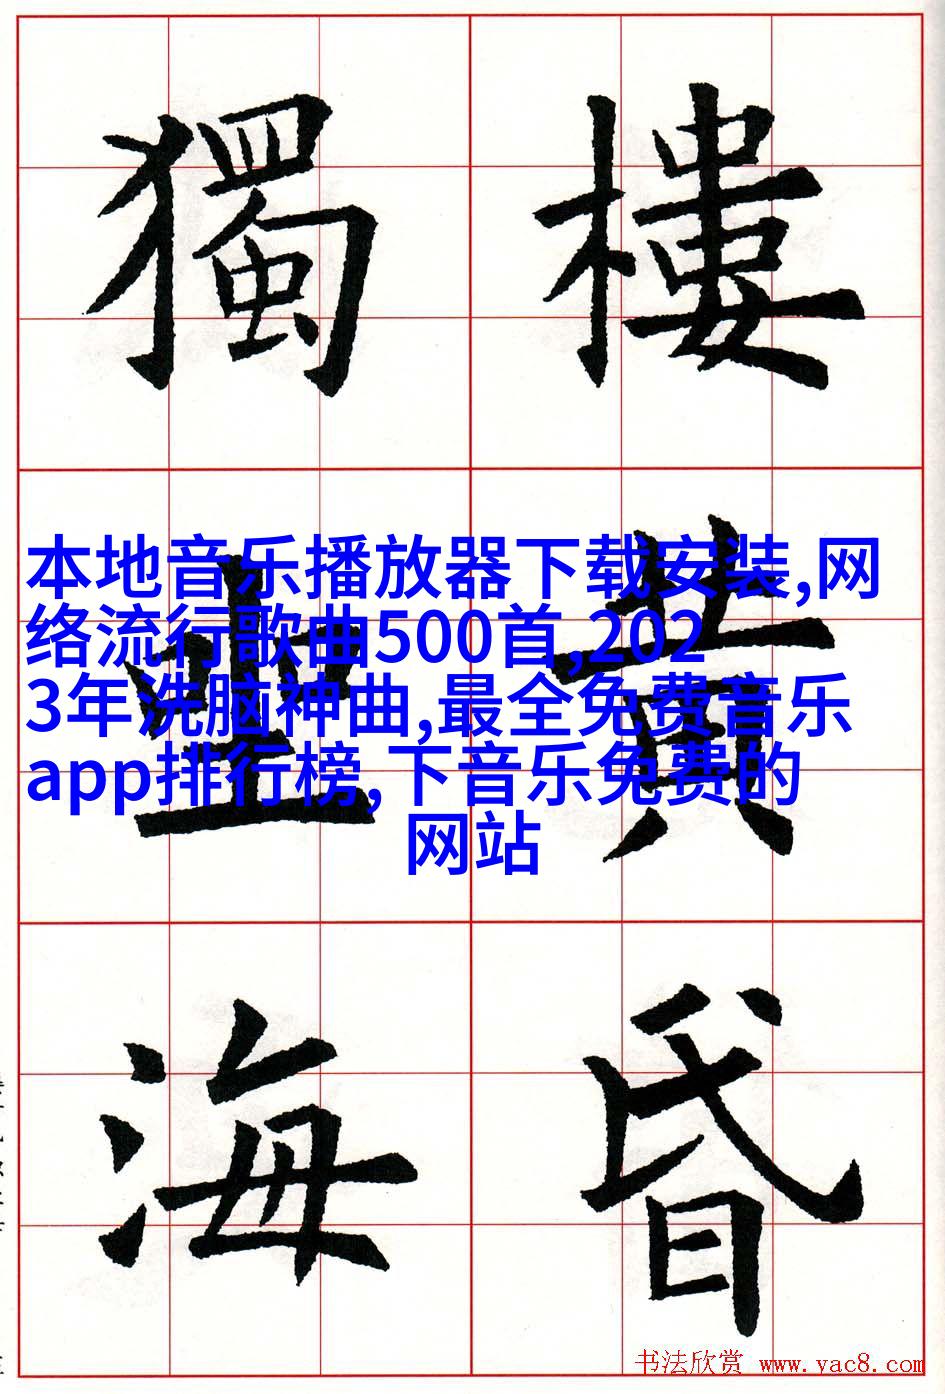 樓黄昏
獨坐海
本地音乐播放器下载安装,网
络流行歌曲500首,202
3年洗脑神曲,最全免费音乐
app排行榜,下音乐免费的
网站
书法欣赏 www.yac8.com